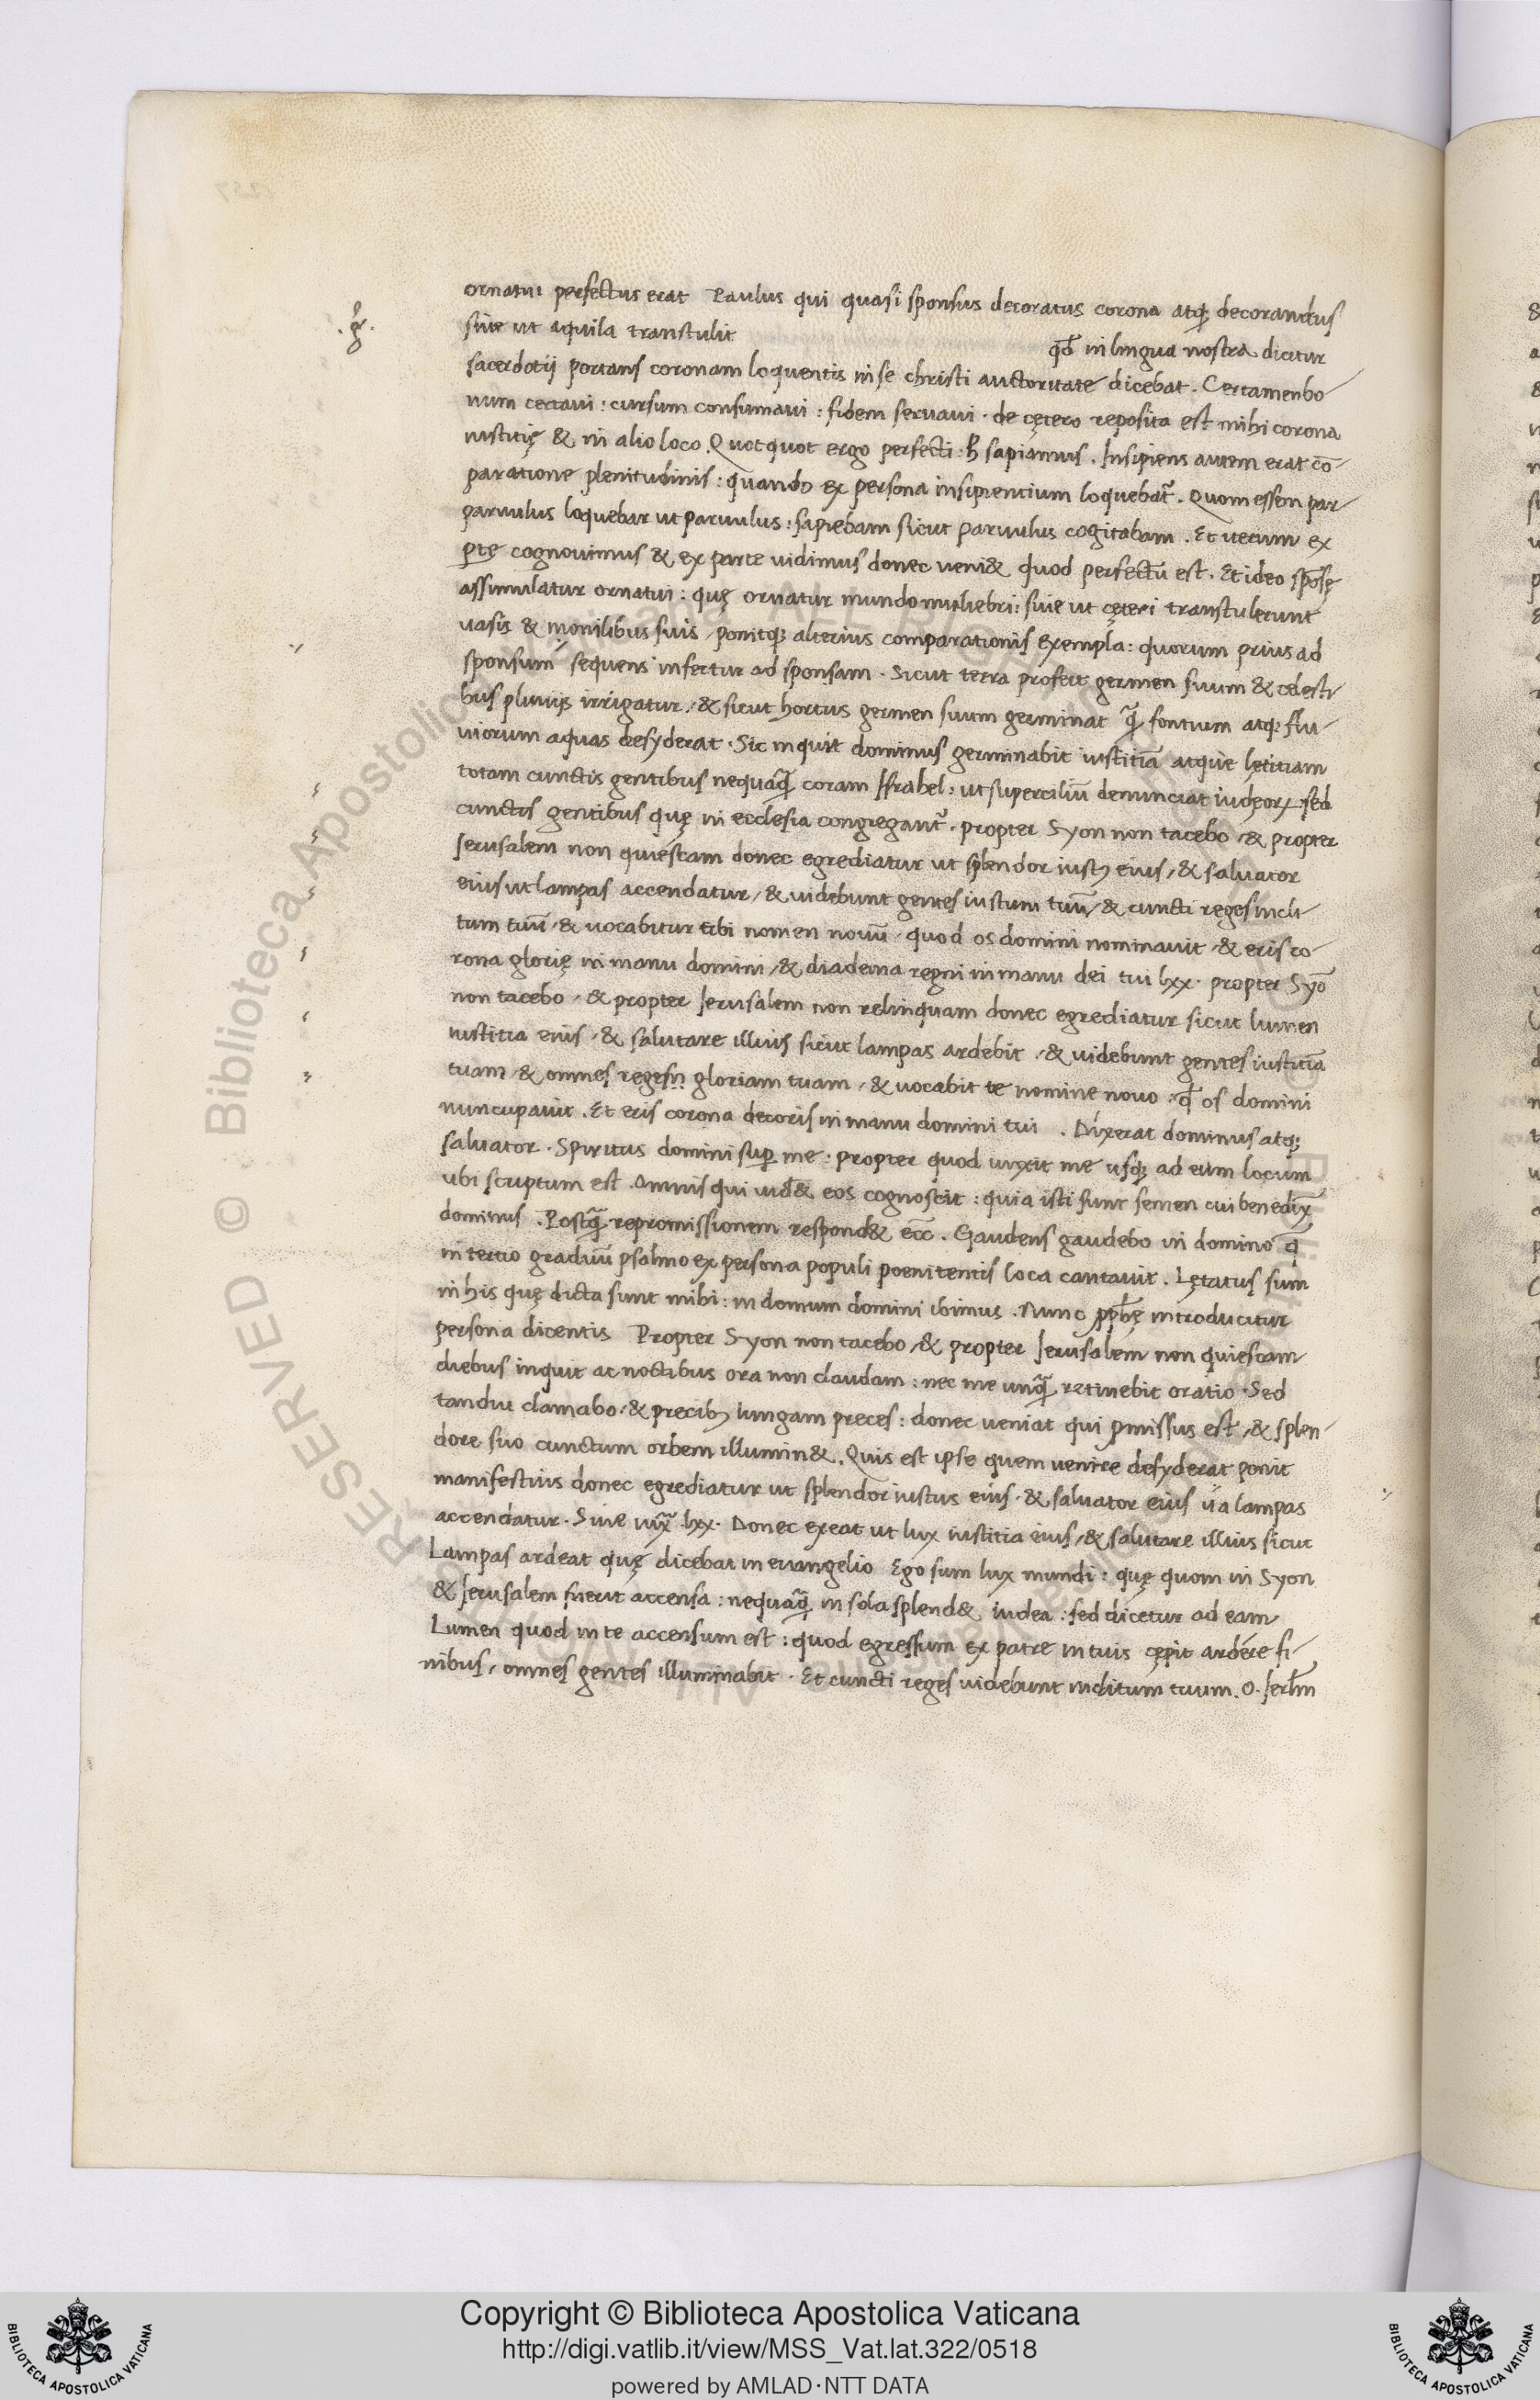 ornatui perfectus erat Paulus qui quasi sponsus decoratus corona atq; decorandus
.gr̄.
siue ut aquila transtulit qd̄ in lingua nostra dicitur
sacerdotij portans coronam loquentis in se christi auctoritate dicebat . Certamen bo
num certaui : cursum consumaui : fidem seruaui . de cętero reposita est mihi corona
iustitię & in alio loco . Quotquot ergo perfecti : h̄ sapiamus . Insipiens autem erat cō-
paratione plenitudinis : quando ex persona insipientium loquebat̃ . Quom essem par
paruulus loquebar ut paruulus : sapiebam sicut paruulus cogitabam . Et iterum ex
pte cognouimus & ex parte uidimus donec ueni& quod perfectū est . Et ideo spōsę
assimulatur ornatui : quę ornatur mundo muliebri : siue ut cęteri transtulerunt
uasis & monilibus suis / ponitq; alterius comparationis exempla : quorum prius ad
sponsum sequens infertur ad sponsam . Sicut terra profert germen suum & celesti
bus pluuijs irrigatur / & sicut hortus germen suum germinat q̃ fontium atq; flu-
uiorum aquas desyderat . Sic inquit dominus germinabit iustitiā atque lętitiam
totam cunctis gentibus nequaq̃ coram Israhel : ut superciliū denunciat iudęoꝝ sed
cunctis gentibus quę in ecclesia congregant̃ . propter Syon non tacebo / & propter
Ierusalem non quiescam donec egrediatur ut splendor iustꝰ eius / & saluator
eius ut lampas accendatur / & uidebunt gentes iustum tuū / & cuncti reges incli-
tum tuū / & uocabitur tibi nomen nouū . quod os domini nominauit / & eris co-
rona glorię in manu domini / & diadema regni in manu dei tui lxx . propter Syō
non tacebo / & propter Ierusalem non relinquam donec egrediatur sicut lumen
iustitia eius / & salutare illius sicut lampas ardebit / & uidebunt gentes iustitiā
tuam / & omnes reges gloriam tuam / & uocabit te nomine nouo : qd̄ os domini
nuncupauit . Et eris corona decoris in manu domini tui . Dixerat dominus atq;
saluator . Spiritus domini sup me : propter quod unxit me usq; ad eum locum
ubi scriptum est . Omnis qui uid& eos cognoscit : quia isti sunt semen cui benedix̄
dominus . Postq̃ repromissionem respond& ecc̄ . Gaudens gaudebo in domino q̄
in tertio graduū psalmo ex persona populi poenitentis loca cantauit . Lętatus sum
in his quę dicta sunt mihi : in domum domini ibimus . Nunc pphę introducitur
persona dicentis Propter Syon non tacebo / & propter Ierusalem non quiescam
diebus inquit ac noctibus ora non claudam : nec me unq̃ retinebit oratio . Sed
tandiu clamabo / & precibꝰ iungam preces : donec ueniat qui pmissus est / & splen-
dore suo cunctum orbem illumin& . Quis est ipse quem uenire desyderat ponit
manifestius donec egrediatur ut splendor iustus eius . & saluator eius ita lampas
accendatur . Siue iux̃ . lxx . Donec exeat ut lux iustitia eius / & salutare illius sicut
Lampas ardeat quę dicebat in euangelio Ego sum lux mundi : quę quom in Syon
& Ierusalem fuerit accensa : nequaq̃ in sola splend& iudea : sed dicetur ad eam
Lumen quod in te accensum est : quod egressum ex patre in tuis cępit ardére fi-
nibus / omnes gentes illuminabit . Et cuncti reges uidebunt inclitum tuum . O . Ierlm̄
RESERVED © Biblioteca Apostolica Vaticana
Copyright © Biblioteca Apostolica Vaticana
http://digi.vatlib.it/view/MSS_Vat.lat.322/0518
powered by AMLAD·NTT DATA
BIBLIOTECA APOSTOLICA VATICANA
BIBLIOTECA APOSTOLICA VATICANA